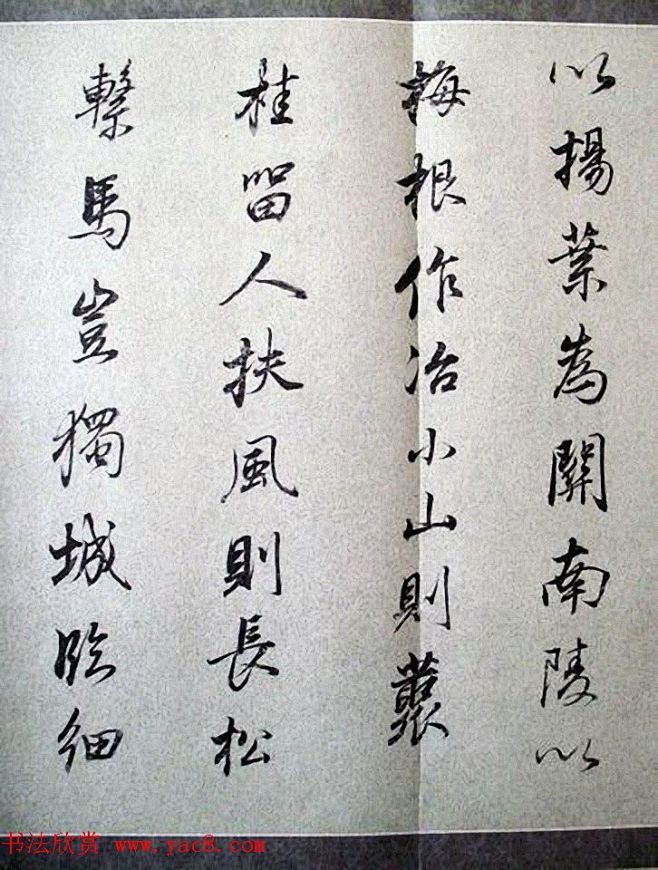 以楊葉為關南陵以
梅根作冶小山則藂
桂留人扶風則長松
繫馬豈獨城臨細
书法欣赏 www.yac8.com